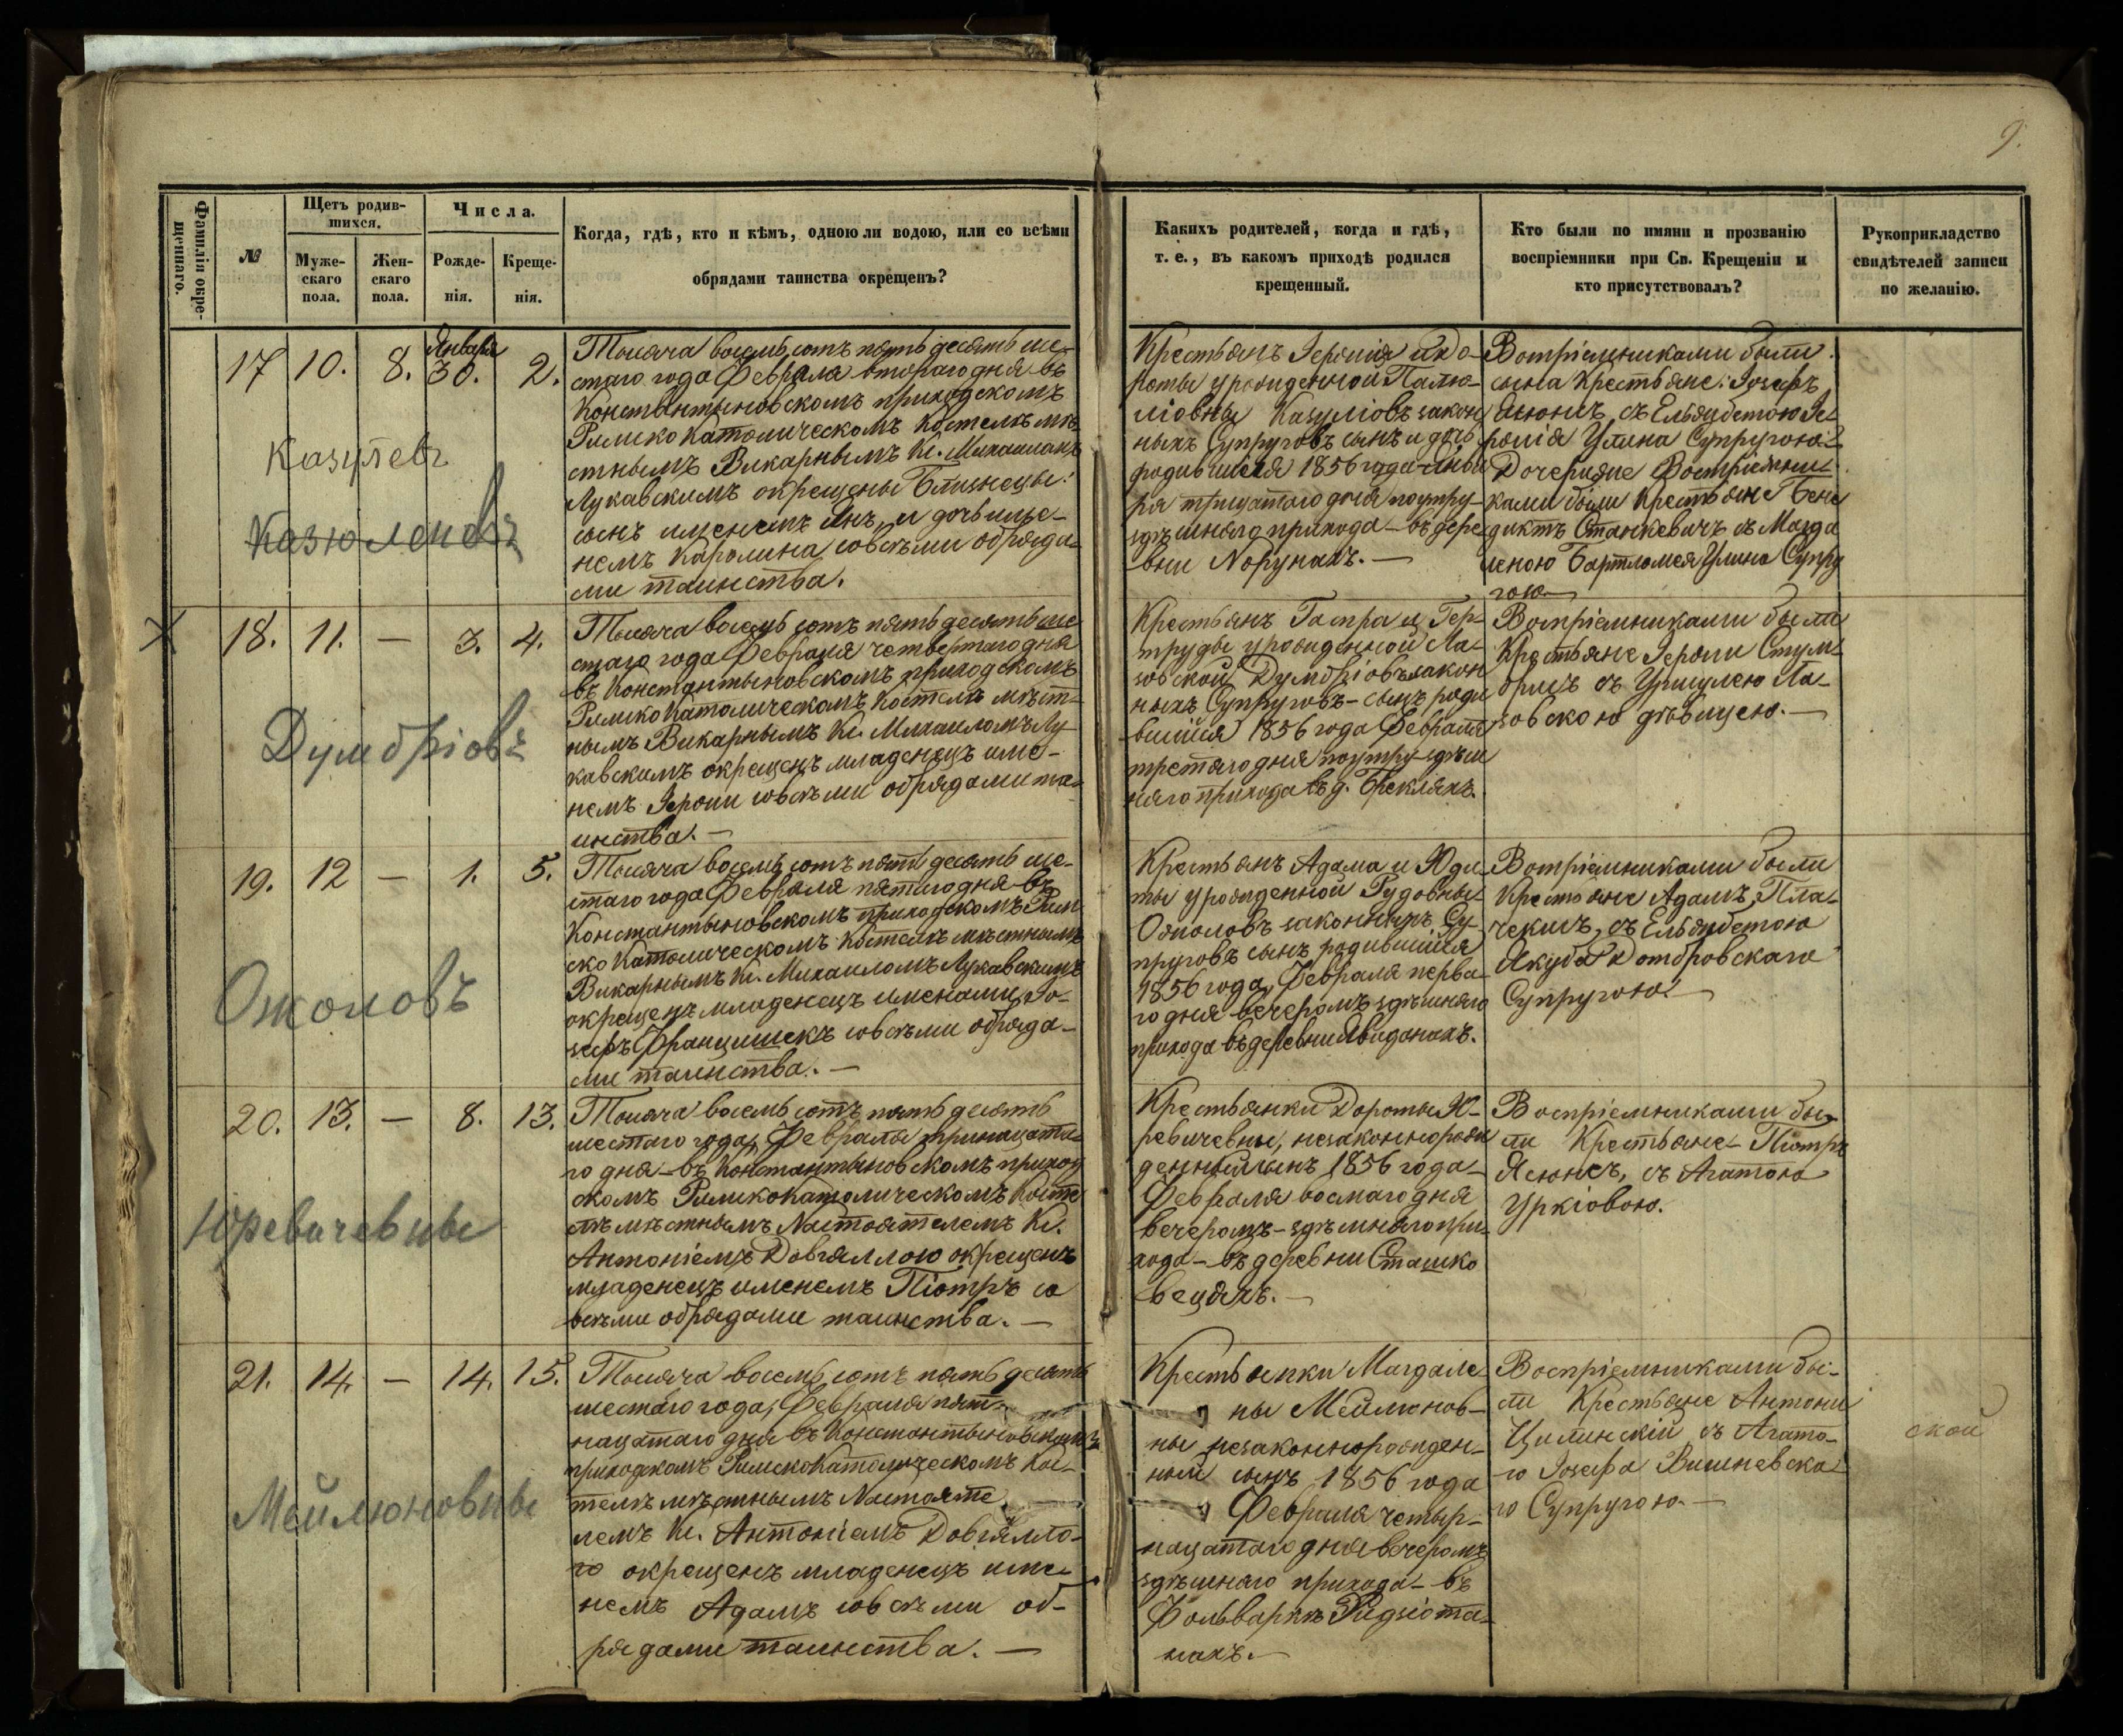 9.
Фамилія окре-
щеннаго.
№
Щетъ родив-
шихся.
Муже-
скаго
пола.
Жен-
скаго
пола.
Числа.
Рожде-
нія.
Креще-
нія.
Когда, гдѣ, кто и кѣмъ, одною ли водою, или со всѣми
обрядами таинства окрещенъ?
Какихъ родителей, когда и гдѣ,
т. е., въ какомъ приходѣ родился
крещенный.
Кто были по имяни и прозванію
воспріемники при Св. Крещеніи и
кто присутствовалъ?
Рукоприкладство
свидѣтелей записи
по желанію.
17 10. 8. Января 30. 2.
Казулевъ
Казюленовъ
Тысяча восемь сотъ пять десять ше-
стаго года Февраля втораго дня въ
Константыновскомъ приходскомъ
Римско Католическомъ Костелѣ мѣ-
стнымъ Викарнымъ Кс. Михаиломъ
Лукавскимъ окрещены Близнецы:
сынъ именемъ Янъ, и дочь име-
немъ Каролина, со всѣми обряда-
ми таинства.
Крестьянъ Іеронія и До-
роты урожденной Палю-
ліовны Казуліовъ закон
ныхъ Супруговъ сынъ и дочь
родившіеся 1856 года Янва
ря трицатаго дня поутру
здѣшняго прихода въ дере
вни Норунахъ. —
Вотріемниками были
сына Крестьяне: Іозефъ
Ясюнсъ, съ Ельзбетою Іе-
ронія Улина Супругою.
Дочери же Востріемни
ками были Крестьяне Бене
диктъ Станкевичъ съ Магда
леною Бартломея Улина Супру
гою. —
18. 11. — 3. 4.
Думбріовъ
Тысяча восемь сотъ пять десять ше
стаго года Февраля четвертаго дня
въ Константыновскомъ приходскомъ
Римско Католическомъ Костелѣ мѣст-
нымъ Викарнымъ Кс. Михаиломъ Лу
кавскимъ окрещенъ младенецъ име-
немъ Іерони со всѣми обрядами та-
инства. —
Крестьянъ Гаспра и Гер-
труды урожденной Ла-
зовской Думбріовъ закон
ныхъ Супруговъ - сынъ роди
вшійся 1856 года Февраля
третяго дня поутру здѣш
няго прихода въ д. Брекляхъ.
Востріемниками были
Крестьяне Іерони Стум-
брисъ съ Уршулею Ла-
зовскою дѣвицею. —
19. 12 — 1. 5.
Ожоловъ
Тысяча восемь сотъ пять десять ше-
стаго года Февраля пятаго дня въ
Константыновскомъ приходскомъ Рим
ско Католическомъ Костелѣ мѣстнымъ
Викарнымъ Кс. Михаиломъ Лукавскимъ
окрещенъ младенецъ именами Іо-
зефъ Францишекъ со всѣми обряда-
ми таинства. —
Крестьянъ Адама и Юди-
ты урожденной Рудовны
Ожоловъ законныхъ Су-
пруговъ сынъ родившійся
1856 года, Февраля перва-
го дня вечеромъ здѣшняго
прихода въ деревни Явиданахъ.
Вотріемниками были
Крестьяне Адамъ Пла-
чекисъ, съ Ельзбетою
Якуба Домбровскаго
Супругою. —
20. 13. — 8. 13.
Юревичевны
Тысяча восемь сотъ пять десять
шестаго года, Февраля тринацата-
го дня въ Константыновскомъ приход
скомъ Римско Католическомъ Косте
лѣ мѣстнымъ Настоятелемъ Кс.
Антоніемъ Довгяллою окрещенъ
младенецъ именемъ Піотръ со
всѣми обрядами таинства. —
Крестьянки Дороты Ю-
ревичевны, незаконнорож
денный сынъ 1856 года
Февраля восмаго дня
вечеромъ - здѣшняго при-
хода - въ деревни Сташко
вецяхъ. —
Воспріемниками бы-
ли Крестьяне Піотръ
Ясюнсъ, съ Агатою
Уркіовою.
21. 14. — 14. 15.
Меймоновны
Тысяча восемь сотъ пять десять
шестаго года, Февраля пят-
нацатаго дня въ Константыновскомъ
приходскомъ Римско Католическомъ Кос-
телѣ мѣстнымъ Настояте
лемъ Кс. Антоніемъ Довгялло-
ю окрещенъ младенецъ име-
немъ Адамъ со всѣми об-
рядами таинства. —
Крестьянки Магдале-
ны Меймонов-
ны незаконнорожден-
ный сынъ 1856 года
Февраля четыр-
нацатаго дня вечеромъ
здѣшняго прихода - въ
Фольваркѣ Ридзіота-
нахъ. —
Воспріемниками бы-
ли Крестьяне Антони
Цилинскій съ Агато-
ю Іозефа Вишневска
го Супругою. —
ской